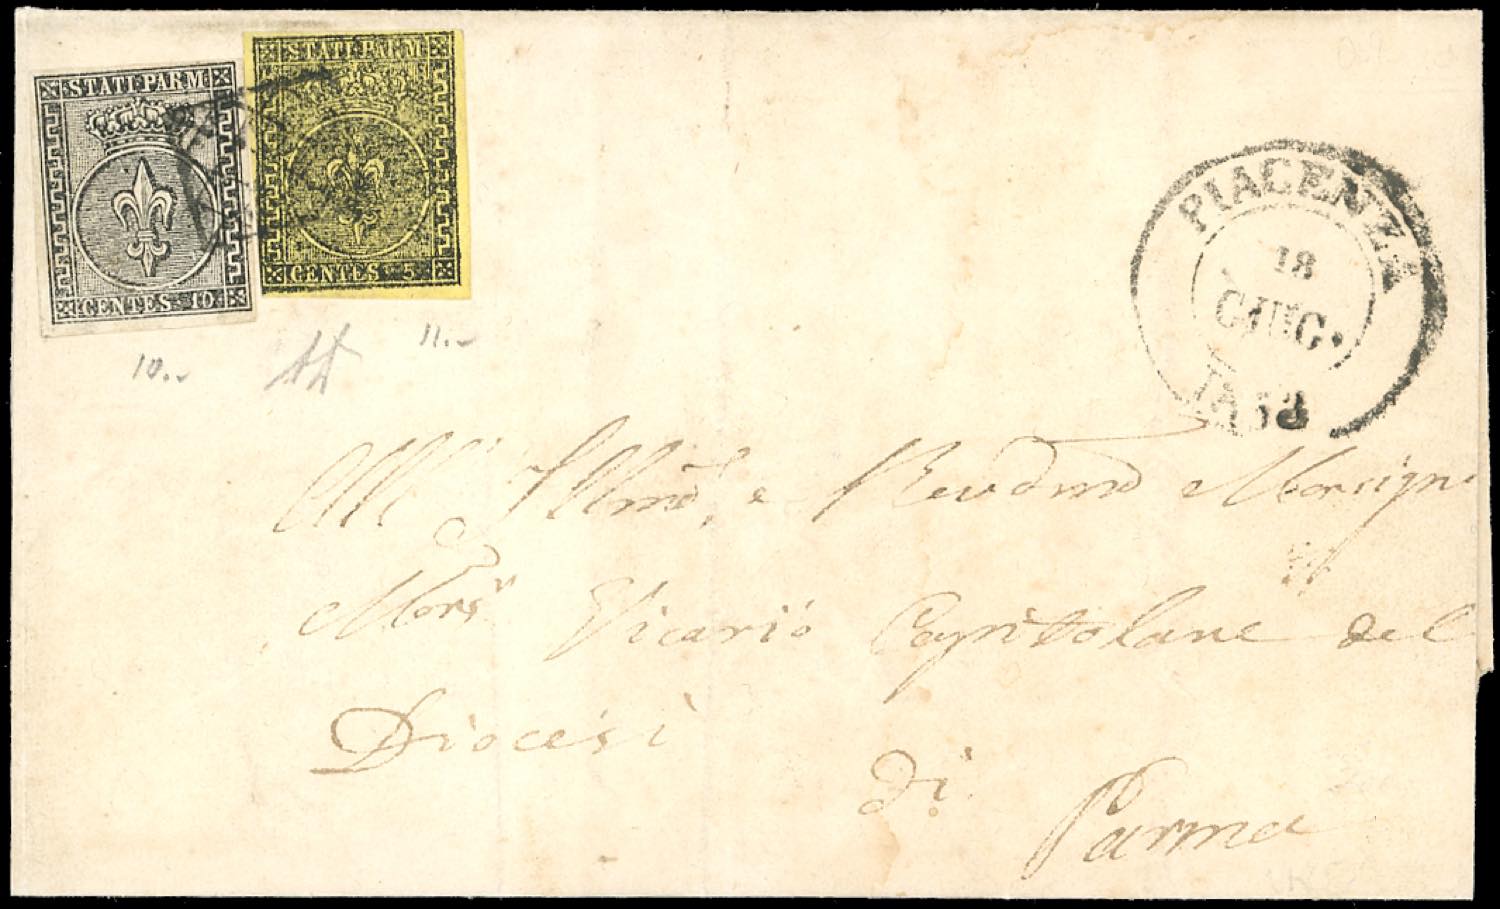 STATI PARM
CENTES 10
STATI PARM
CENTES 5
10.-
11.-
PIACENZA
18
GIUG.
1853
All' Illmo, e Revdmo Monsign
Vicario Capitolare del
Diocesi
di
Parma